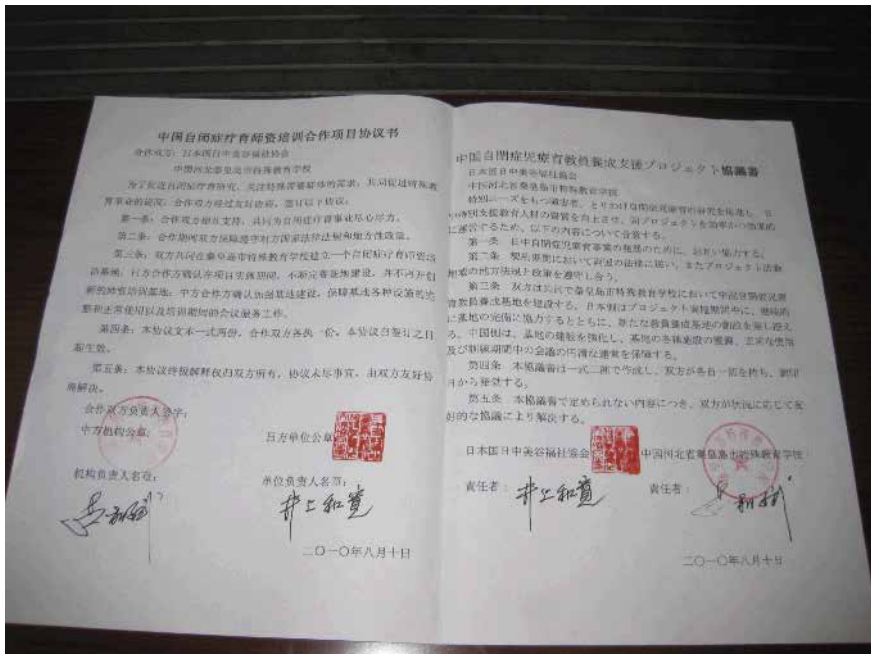 中国自闭症疗育师资培训合作项目协议书
合作双方：日本国日中美谷福祉协会
中国河北秦皇岛市特殊教育学校
为了促进自闭症疗育研究，关注特殊需要群体的需求，共同促进特殊教
育事业的建设，合作双方经过友好协商，签订以下协议：
第一条：合作双方相互支持，共同为自闭症疗育事业尽心尽力。
第二条：合作期间双方保障遵守对方国家法律法规和地方性政策。
第三条：双方共同在秦皇岛市特殊教育学校建立一个自闭症疗育师资培
训基地，日方合作方确认在项目实施期间，不断完善基地建设，并不再开创
新的师资培训基地；中方合作方确认加强基地建设，保障基地各种设施的完
整和正常使用以及培训期间的会议服务工作。
第四条：本协议文本一式两份，合作双方各执一份。本协议自签订之日
起生效。
第五条：本协议终极解释权归双方所有，协议未尽事宜，由双方友好协
商解决。
合作双方负责人签字：
中方机构公章：
日方单位公章：
机构负责人名章：
单位负责人名章：
井上和寛
二〇一〇年八月十日
中国自閉症児療育教員養成支援プロジェクト協議書
日本国日中美谷福祉協会
中国河北省秦皇島市特殊教育学院
特別ニーズをもつ障害者、とりわけ自閉症児療育の研究を促進し、日
特別支援教育人材の資質を向上させ、同プロジェクトを効率かつ効果的
に運営するため、以下の内容について合意する。
第一条 日中自閉症児療育事業の推進のために、お互い協力する。
第二条 契約期間において両国の法律に従い、またプロジェクト活動
地域の地方法規と政策を遵守し合う。
第三条 双方は共同で秦皇島市特殊教育学校において自閉症児療
育教員養成基地を建設する。日本側はプロジェクト実施期間中に、継続的
に基地の完備に協力するとともに、新たな教員養成基地の創設を差し控え
る。中国側は、基地の建設を強化し、基地の各種施設の整備、正常な使用
及び訓練期間中の会議の円滑な運営を保障する。
第四条 本協議書は一式二部で作成し、双方が各自一部を持ち、調印
日から発効する。
第五条 本協議書で定められない内容につき、双方が状況に応じて友
好的な協議により解決する。
日本国日中美谷福祉協会
中国河北省秦皇島市特殊教育学校
責任者：
井上和寛
責任者：
二〇一〇年八月十日